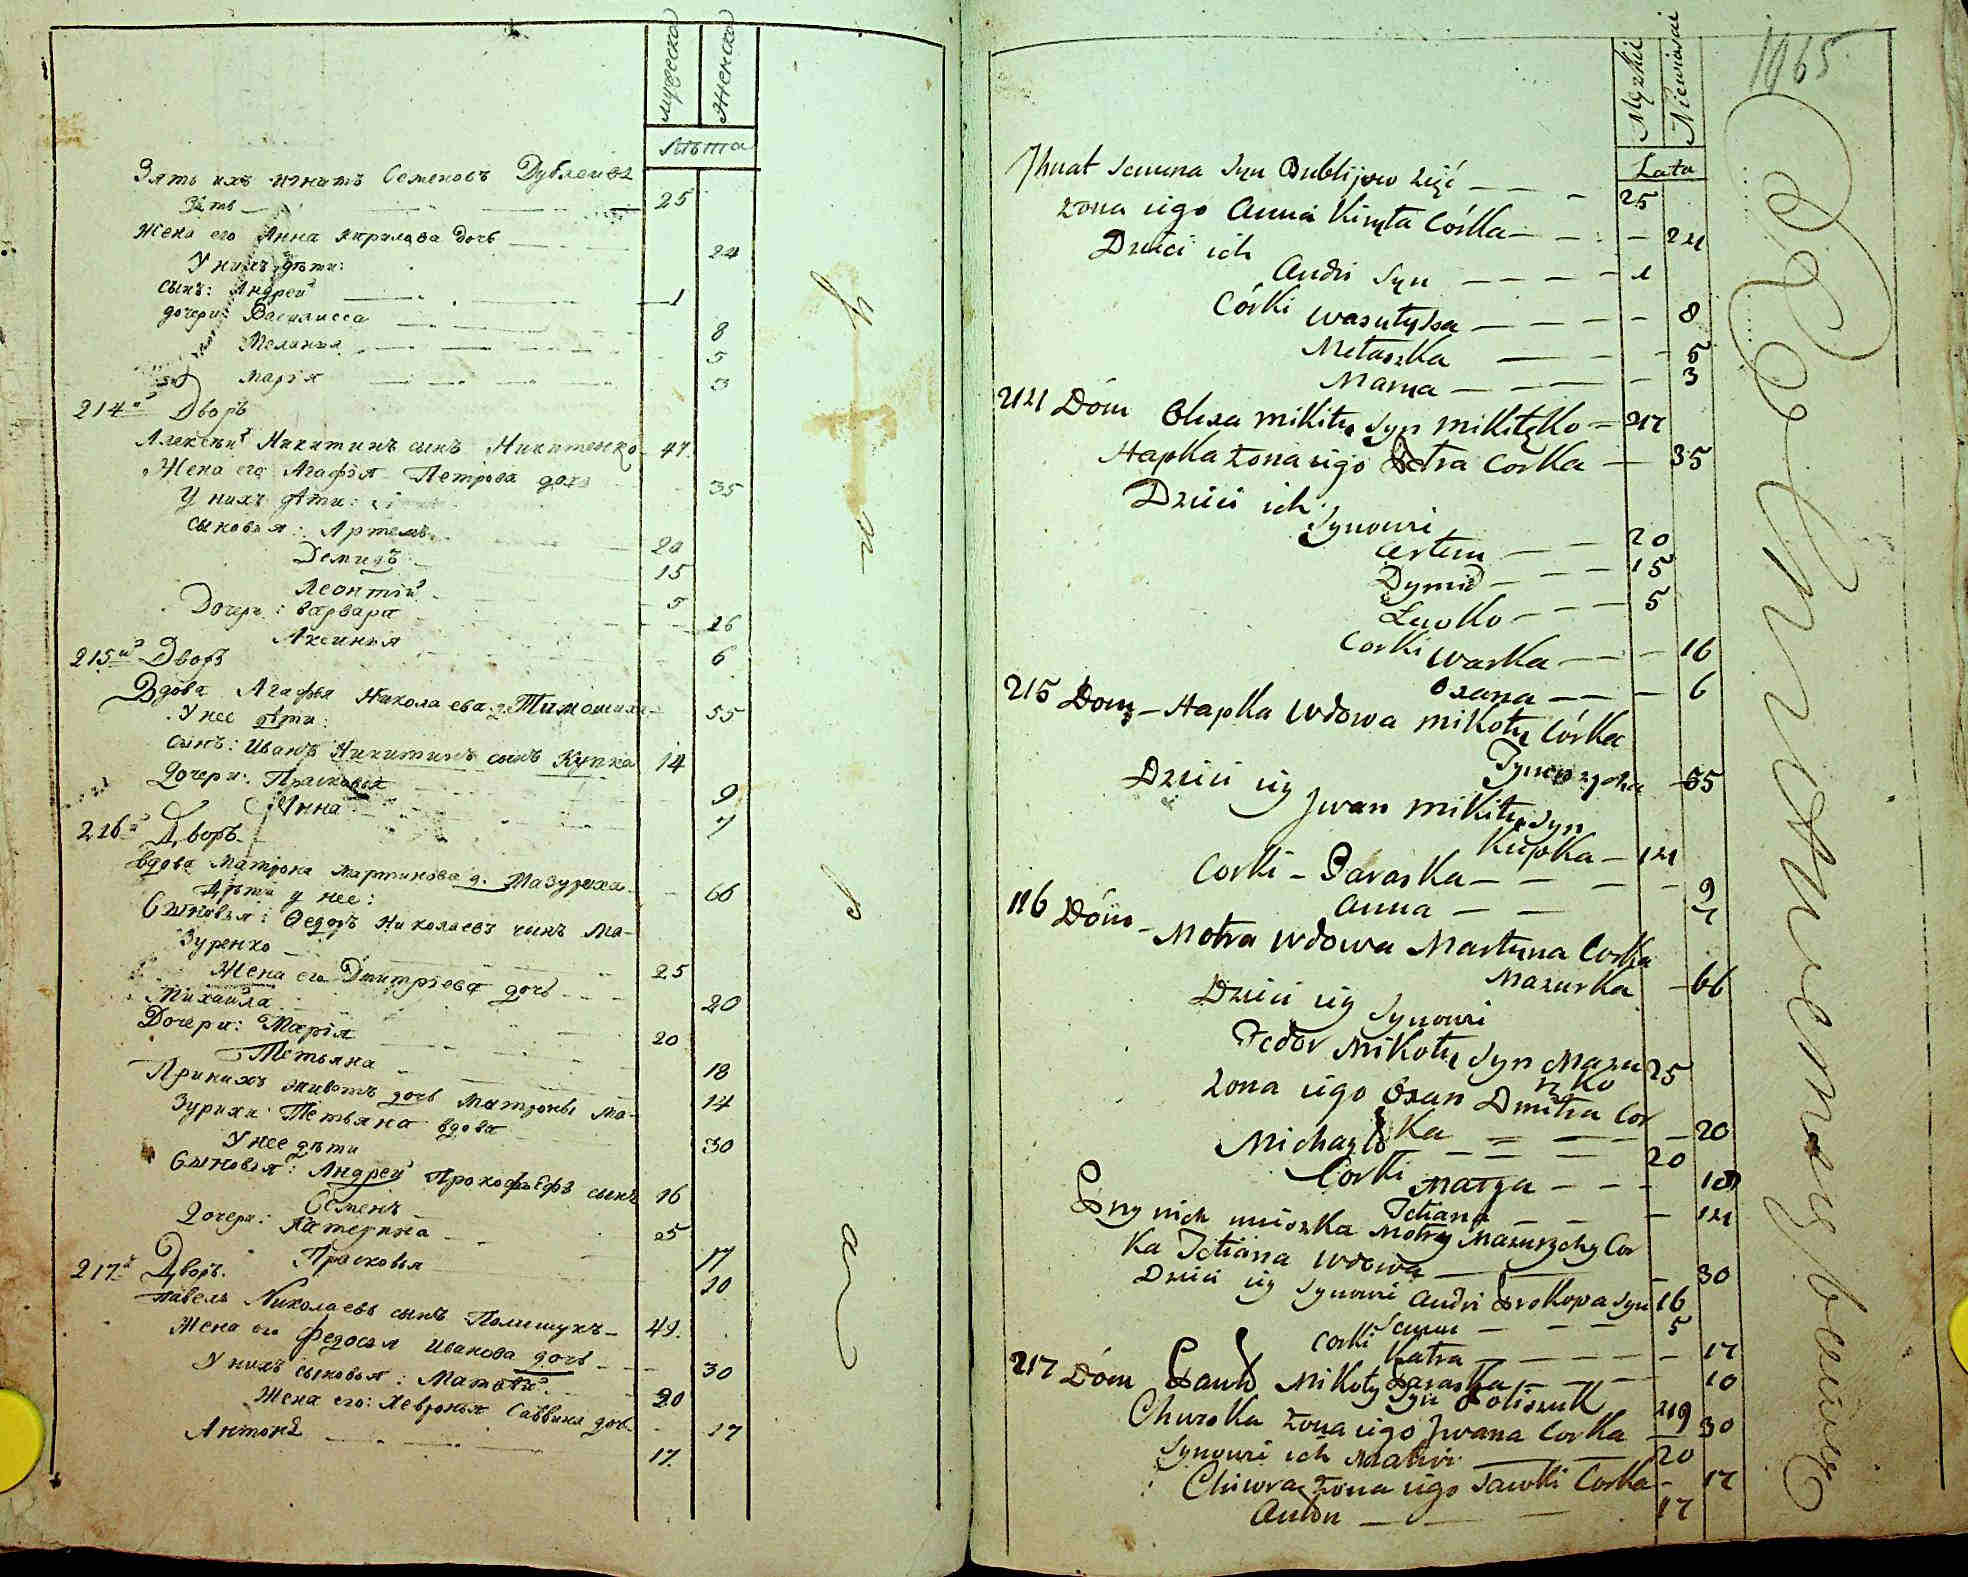 мужеска
женска
лѣта
Зять ихъ Игнатъ Семеновъ
Зять 25
Жена его Анна Кирилова дочь 24
У нихъ дѣти:
сынъ: Андрей 1
дочери: Василисса 8
Меланья 5
Марія 3
214й Дворъ
Алексѣй Никитинъ сынъ Никитенко 47
Жена его Агафія Петрова доч 35
У нихъ дѣти:
сыновья: Артемъ 20
Демидъ 15
Леонтій 5
Дочери: Варвара 16
Аксинья 6
215й Дворъ
Вдова Агафья Николаева д. Тимошиха 55
У нее дѣти:
сынъ: Иванъ Никитинъ сынъ Купка 14
Дочери: Прасковья 9
Анна 7
216й Дворъ
вдова Матрона Мартинова д. Мазуриха 66
Дѣти у нее:
Сыновья: Ѳедоръ Николаевъ сынъ Ма-
зуренко 25
Жена его Дмитріева дочь 20
Михайла 20
Дочери: Марія 18
Тетьяна 14
При нихъ живетъ дочь Матроны Ма-
зурихи Тетьяна вдова 30
У нее дѣти
Сыновья: Андрей Прокофьевъ сынъ 16
Семенъ 5
Дочери: Катерина 17
Прасковья 10
217й Дворъ.
Павелъ Николаевъ сынъ Полищукъ 49.
Жена его Федосья Иванова дочь 30
У нихъ сыновья: Матвѣй 20
Жена его: Хевронья Саввина доч. 17
Антонъ 17
1065
Męzkii
Niewiasai
Lata
Ihnat Semena Syn Bublijow zięć 25
żona iego Anna Kiryła Córka 24
Dzieci ich
Andri Syn 1
Córki Wasułyssa 8
Mełaszka 5
Maryia 3
214 Dóm Olexa Mikity Syn Mikitęko 47
Hapka żona iego Petra Corka 35
Dzieci ich
Synowi
Artem 20
Dymid 15
Lewko 5
Corki Warka 16
Oxana 6
215 Dom - Hapka Wdowa Mikoły Córka
Tymoszycha 55
Dzieci iey Iwan Mikity Syn
Kupka 14
Corki - Paraska 9
Anna 7
116 Dóm - Motra Wdowa Martyna Corka
Mazurka 66
Dzieci iey Synowi
Fedor Mikoły Syn Mazu 25
rzko
żona iego Oxan Dmitra Cor
Ka 20
Michayło 20
Corki Marya 18
Tetiana 14
Przy nich mieszka Motry Mazurzchy Cor
Ka Tetiana Wdowa 30
Dzieci iey Synowi Andri Prokopa Syn 16
Semen 5
Corki Katra 17
Paraska 10
217 Dóm Pawło Mikoły Syn Poliszuk 49
Chweska żona iego Iwana Corka 30
Synowi ich Matwi 20
Chiwra żona iego Sawki Corka 17
Anton 17